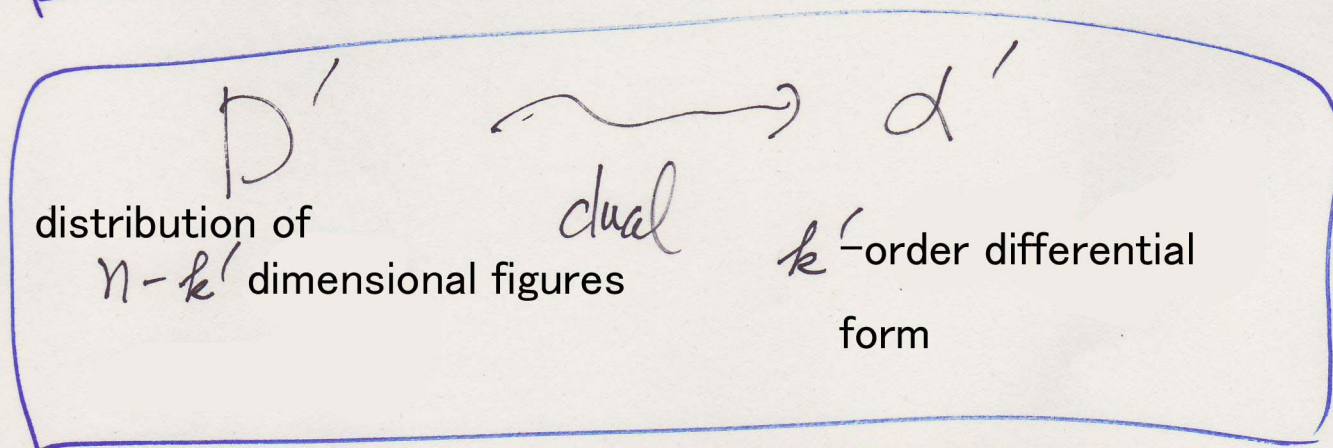 D′ α′
dual
distribution of
n-k′ dimensional figures
k′-order differential
form